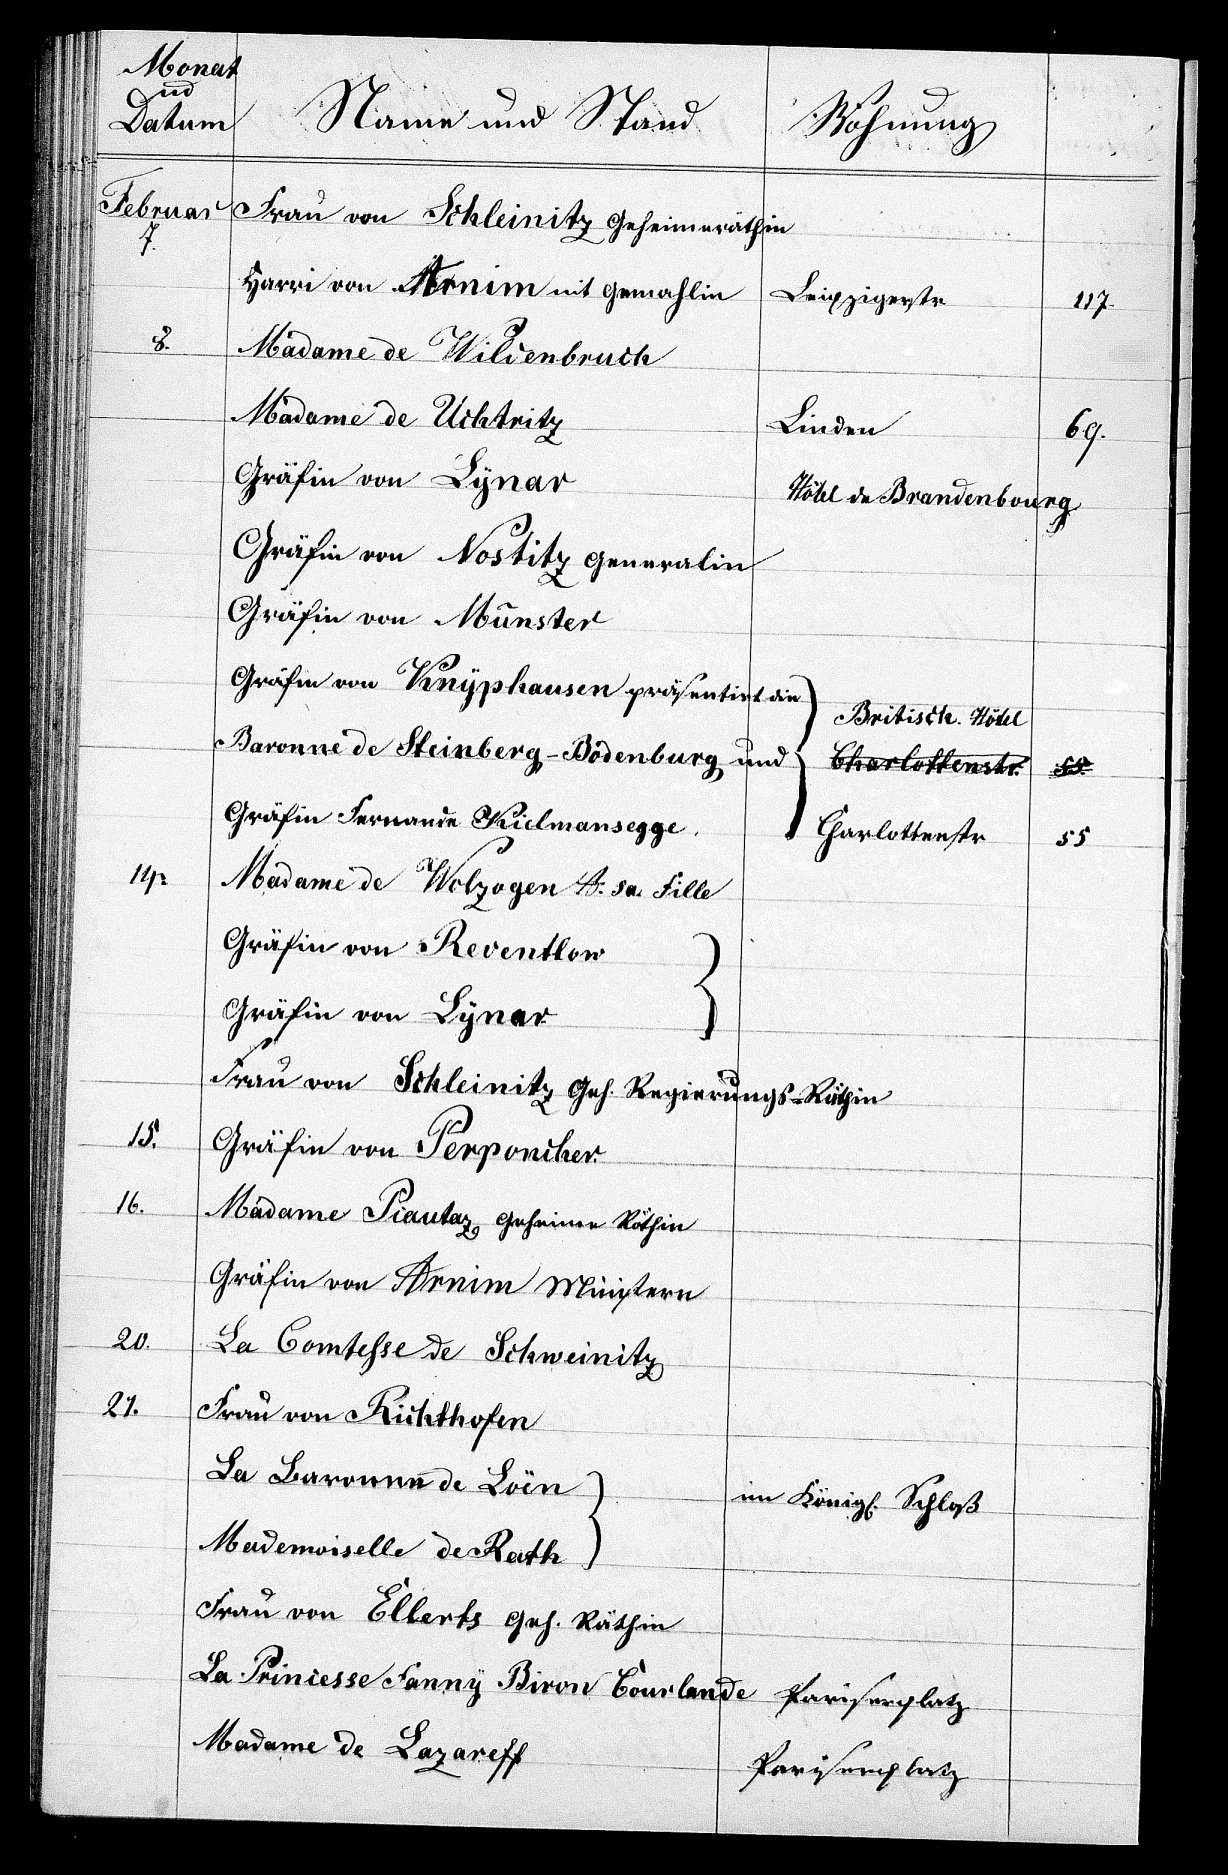 Monat
ud
Datum Name und Stand Wohnung
Februar Frau von Schleinitz Geheimeräthin
7.
Harri von Arnim mit Gemahlin Leipzigerstr 117.
8. Madame de Wildenbruch
Madame de Uchtritz Linden 69.
Gräfin von Lÿnar Hôtel de Brandenbourg
Gräfin von Nostitz Generalin
Gräfin von Münster
Gräfin von Knÿphausen präsentirt die Britisch. Hôtel
Baronne de Steinberg-Bodenburg und Charlottenstr. 55.
Gräfin Fernande Kielmansegge. Charlottenstr 55
Madame de Wolzogen & sa Fille
Gräfin von Reventlow
Gräfin von Lÿnar
Frau von Schleinitz Geh. Regierungs-Räthin
15. Gräfin von Perponcher
16. Madame Piautaz Geheime Räthin
Gräfin von Arnim Ministern
20. La Comtesse de Schweinitz
21. Frau von Richthofen
La Baronne de Loën im Königl. Schloß
Mademoiselle de Rath
Frau von Ellerts Geh. Räthin
La Princesse Fannÿ Biron Courlande Pariserplatz
Madame de Lazareff Pariserplatz